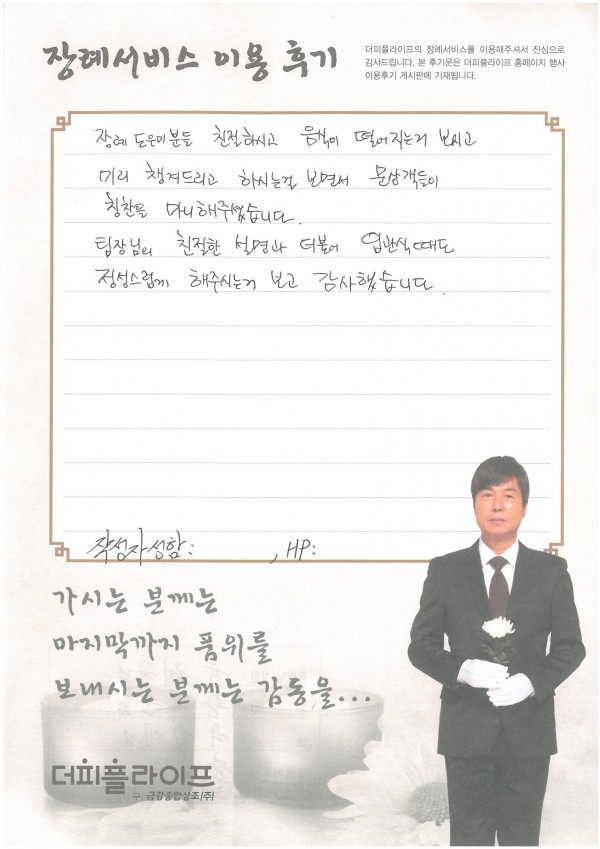 장례서비스 이용 후기
더피플라이프의 장례서비스를 이용해주셔서 진심으로
감사드립니다. 본 후기문은 더피플라이프 홈페이지 행사
이용후기 게시판에 기재됩니다.
장례 도우미분들 친절하시고 음식이 떨어지는거 보시고
미리 챙겨드리고 하시는걸 보면서 문상객들이
칭찬을 마니해주셨습니다.
팀장님의 친절한 설명과 더불어 입관식때도
정성스럽게 해주시는거 보고 감사했습니다
작성자성함: , HP:
가시는 분께는
마지막까지 품위를
보내시는 분께는 감동을...
더피플라이프
구, 금강종합상조(주)